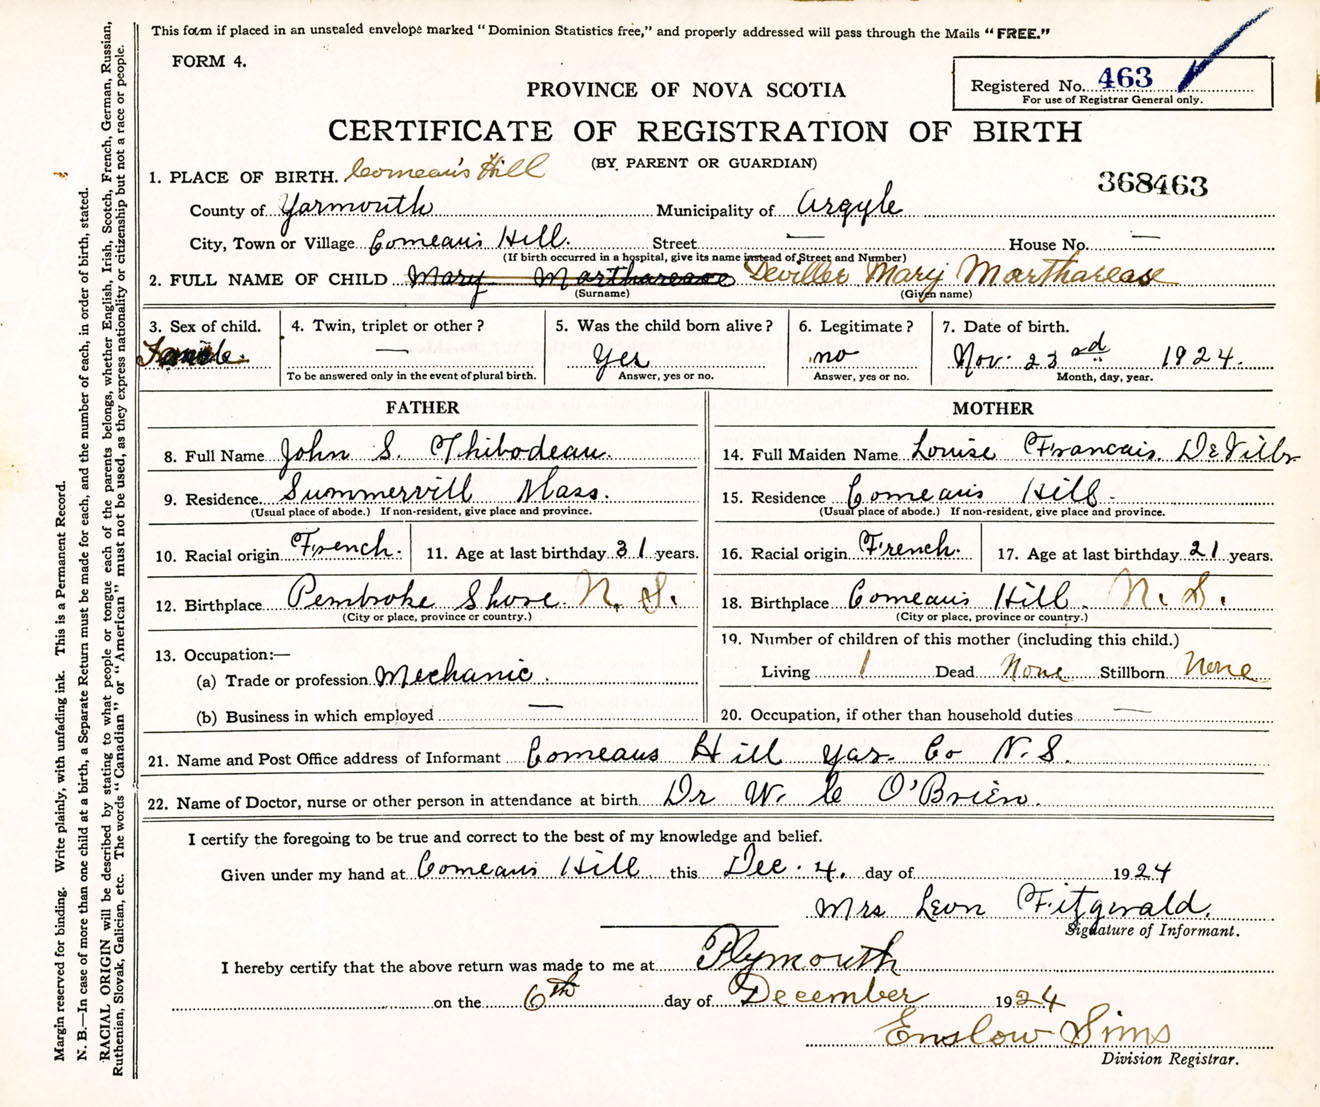 This form if placed in an unsealed envelope marked "Dominion Statistics free," and properly addressed will pass through the Mails "FREE."
FORM 4.
PROVINCE OF NOVA SCOTIA
Registered No. 463
For use of Registrar General only.
CERTIFICATE OF REGISTRATION OF BIRTH
(BY PARENT OR GUARDIAN)
368463
1. PLACE OF BIRTH. Comeau's Hill
County of Yarmouth Municipality of Argyle
City, Town or Village Comeau's Hill. Street — House No. —
(If birth occurred in a hospital, give its name instead of Street and Number)
2. FULL NAME OF CHILD Mary Martharease Deviller Mary Martharease
(Surname) (Given name)
3. Sex of child. Female.
4. Twin, triplet or other? —
To be answered only in the event of plural birth.
5. Was the child born alive? Yes
Answer, yes or no.
6. Legitimate? no
Answer, yes or no.
7. Date of birth. Nov. 23rd 1924.
Month, day, year.
FATHER
8. Full Name John S. Thibodeau.
9. Residence. Summervill Mass.
(Usual place of abode.) If non-resident, give place and province.
10. Racial origin French.
11. Age at last birthday 31 years.
12. Birthplace Pembroke Shore N. S.
(City or place, province or country.)
13. Occupation:—
(a) Trade or profession Mechanic.
(b) Business in which employed —
MOTHER
14. Full Maiden Name Louise Francais. DeViller
15. Residence Comeau's Hill.
(Usual place of abode.) If non-resident, give place and province.
16. Racial origin French.
17. Age at last birthday 21 years.
18. Birthplace Comeau's Hill. N. S.
(City or place, province or country.)
19. Number of children of this mother (including this child.)
Living 1 Dead None Stillborn None
20. Occupation, if other than household duties —
21. Name and Post Office address of Informant Comeaus Hill Yar. Co N. S.
22. Name of Doctor, nurse or other person in attendance at birth Dr W. C O'Brien.
I certify the foregoing to be true and correct to the best of my knowledge and belief.
Given under my hand at Comeau's Hill this Dec. 4. day of 1924
Mrs Leon Fitgerald.
Signature of Informant.
I hereby certify that the above return was made to me at Plymouth
on the 6th day of December 1924
Enslow Sims
Division Registrar.
Margin reserved for binding. Write plainly, with unfading ink. This is a Permanent Record.
N. B.—In case of more than one child at a birth, a Separate Return must be made for each, and the number of each, in order of birth, stated.
RACIAL ORIGIN will be described by stating to what people or tongue each of the parents belongs, whether English, Irish, Scotch, French, German, Russian,
Ruthenian, Slovak, Galician, etc. The words "Canadian" or "American" must not be used, as they express nationality or citizenship but not a race or people.